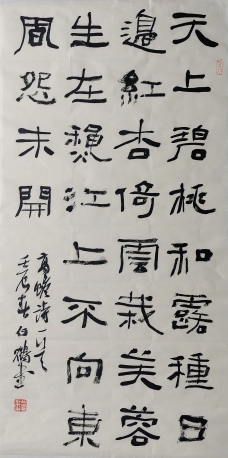 天上碧桃和露種日
邊紅杏倚雲栽芙蓉
生在穐江上不向東
風怨未開
高蟾詩一首
壬辰春